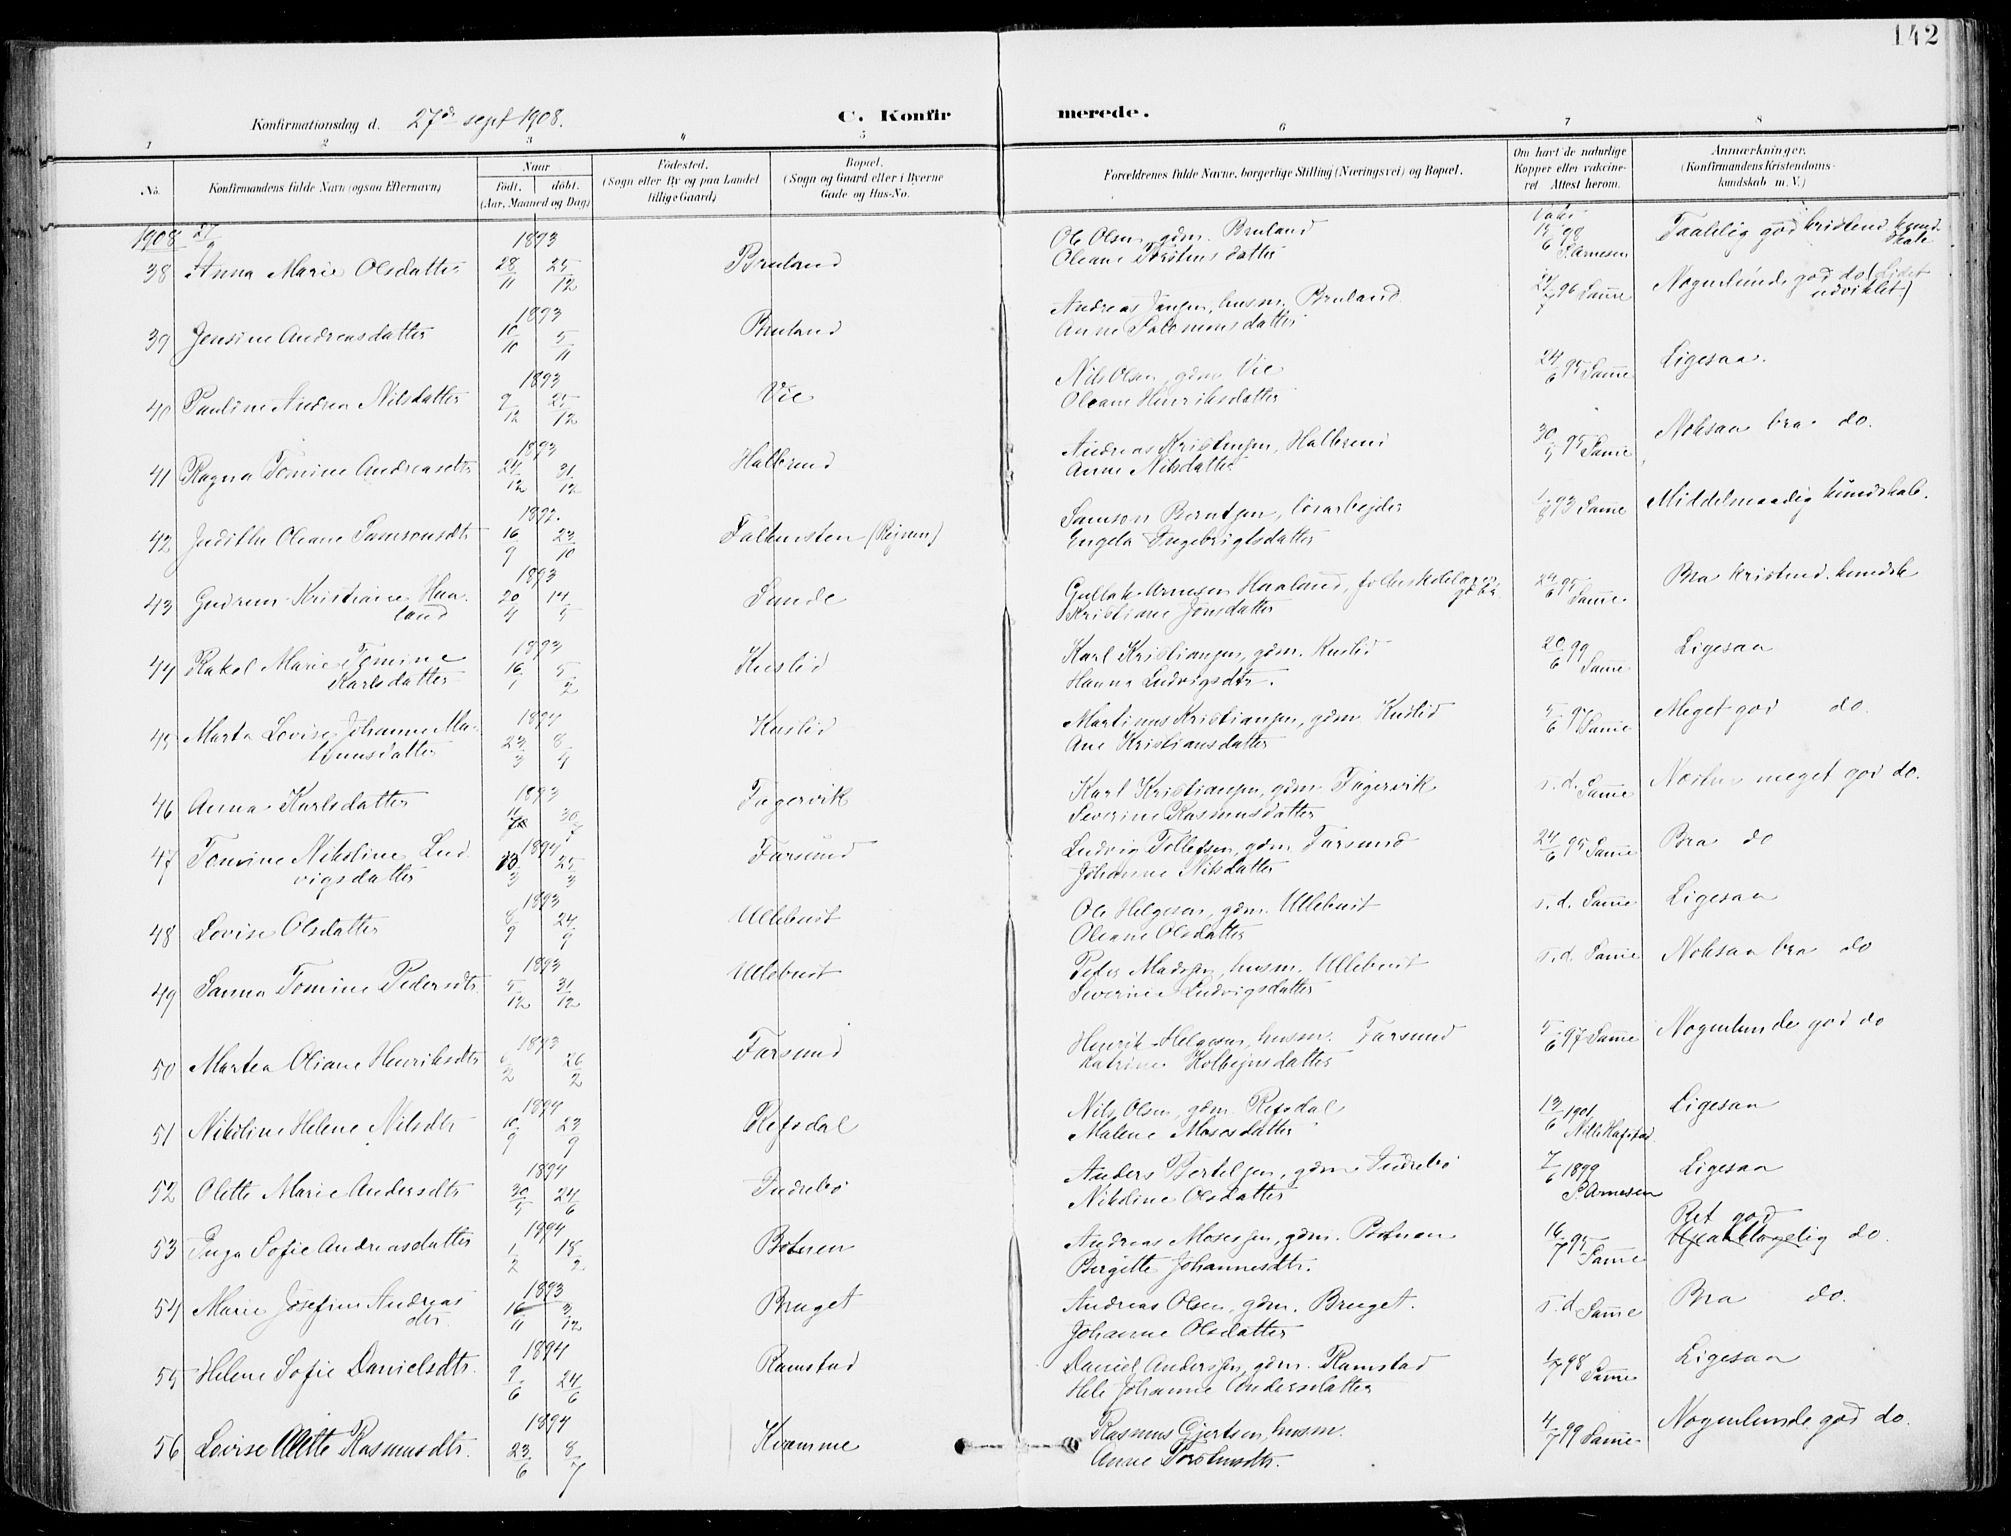 142
Konfirmationsdag d. 27de sept 1908. C. Konfirmerede.
1 2 3 4 5 6 7 8
No. Konfirmandens fulde Navn (ogsaa Efternavn) Naar født. døbt. (Aar, Maaned og Dag) Fødested. (Sogn eller By og paa Landet tillige Gaard) Bopæl. (Sogn og Gaard eller i Byerne Gade og Hus-No. Forældrenes fulde Navne, borgerlige Stilling (Næringsvei) og Bopæl. Om havt de naturlige Kopper eller vaccineret. Attest herom. Anmærkninger. (Konfirmandens Kristendomskundskab m. V.)
1908 27/9
38 Anna Marie Olsdatter 1893 28/11 25/12 Bruland Ole Olsen, gdm. Bruland
Oleane Torstensdatter 15/6 98 P. Arnesen Taalelig god kristend. kundskab
39 Jensine Andreasdatter 1893 10/10 5/11 Bruland Andreas Jensen, husm. Bruland
Anne Salomonsdatter 24/7 96 Samme Nogenlunde god do (Lidet udviklet)
40 Pauline Andrea Nilsdatter 1893 9/12 25/12 Vie Nils Olsen, gdm Vie
Oleane Henriksdatter 24/6 95 Samme Ligesaa.
41 Ragna Tomine Andreasdtr 1893 24/12 31/12 Halbrend Andreas Kristensen, Halbrend
Anne Nilsdatter 95 Samme Noksaa bra do.
42 Judithe Oleane Samsonsdtr 16/9 23/10 Falkensten Samson Berntsen, løsarbejder
Engela Ingebrigtsdatter 93 Samme Middelmaadig kundskab.
43 Gudrun Kristiane Haaland 1893 20/4 14/5 Sunde Gullak Arnesen Haaland,
Kristiane Jonsdatter 95 Samme. Bra kristend. kundsk
44 Rakel Marie Tomine Karlsdatter 1893 16/1 5/2 Kuslid Karl Kristiansen, gdm. Kuslid
Hanna Ludvigsdtr. 20/6 99 Samme Ligesaa
45 Marta Lovise Johanne Martinusdatter 1894 23/3 8/4 Kuslid Martinus Kristiansen, gdm. Kuslid
Ane Kristiansdatter 5/6 97 Samme Meget god do.
46 Anna Karlsdatter 1893 30/7 Fagervik Karl Kristiansen, gdm Fagervik
Severine Rasmusdatter s. d. Samme Næsten meget god do.
47 Tomine Nikoline Ludvigsdatter 1894 25/3 Farsund Ludvig Tollefsen, gdm Farsund
Johanne Nilsdatter 24/6 95 Samme Bra do
48 Lovise Olsdatter 1893 8/9 24/9 Ullebust Ole Helgesen, gdm. Ullebust
Oleane Olsdatter s. d. Samme Ligesaa
49 Sanna Tomine Pedersdtr 1893 5/12 31/12 Ullebust Peder Madssen, husm. Ullebust
Severine Ludvigsdatter s. d. Samme Noksaa bra do
50 Martea Oliane Henriksdtr 1893 6/2 26/2 Farsund Henrik Helgesen, husm. Farsund
Katrine Kolbejnsdatter 5/6 97 Samme Nogenlunde god do
51 Nikoline Helene Nilsdtr 1894 10/9 23/9 Refsdal Nils Olsen, gdm. Refsdal
Malene Mosesdatter 13/6 1901 Ligesaa
52 Olette Marie Andersdtr 1894 30/5 24/6 Indrebø Anders Bertelsen, gdm. Indrebø
Nikoline Olsdatter 7/6 1899 P. Arnesen Ligesaa
53 Inga Sofie Andreasdatter 1894 1/2 18/2 Botnen Andreas Mosessen, gdm. Botnen
Birgitte Johannesdtr. 16/7 95 Samme Ret god do.
54 Marie Josefine Andreasdtr. 1893 16/11 3/12 Bruget Andreas Olsen, gdm. Bruget.
Johanne Olsdatter s. d Samme Bra do.
55 Helene Sofie Danielsdtr. 1894 9/6 24/6 Ramstad Daniel Anderssen, gdm. Ramstad
Johanne Andersdatter 98 Samme Ligesaa
56 Lovise Olette Rasmusdtr. 1894 23/6 8/7 Kvamme Rasmus Gjertsen, husm.
Anne Torstensdtr. 4/7 99 Samme Nogenlunde god do.